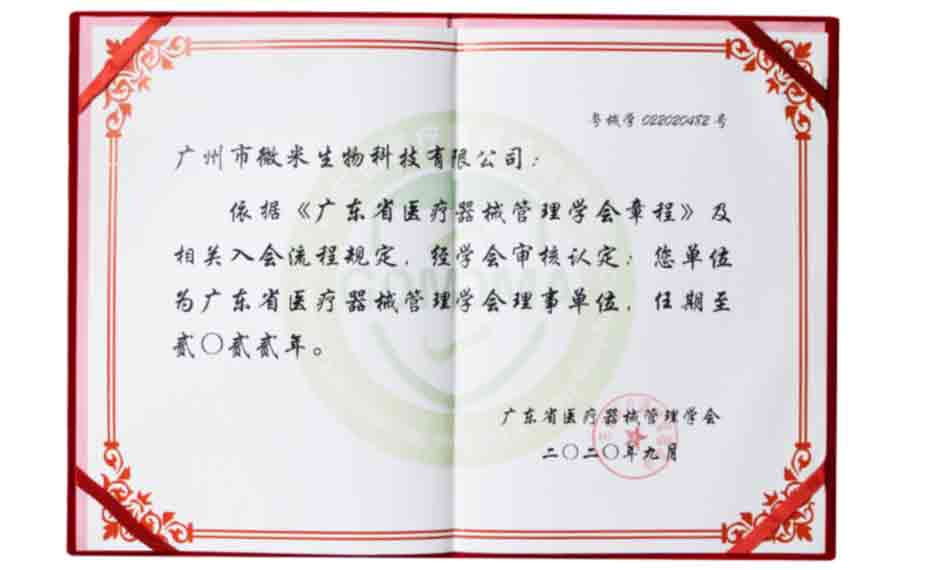 粤械学022020482号
广州市微米生物科技有限公司:
依据《广东省医疗器械管理学会章程》及
相关入会流程规定,经学会审核认定:您单位
为广东省医疗器械管理学会理事单位,任期至
贰〇贰贰年。
广东省医疗器械管理学会
二〇二〇年九月